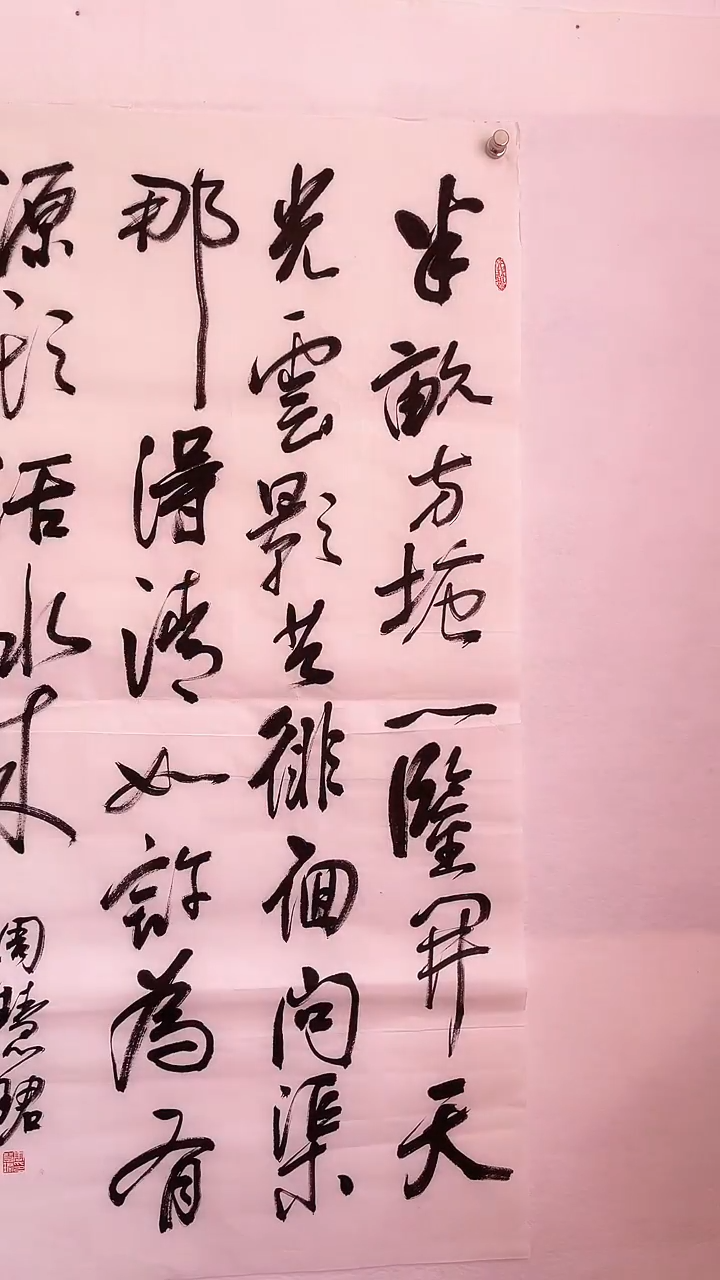 半畝方塘一鑒開天
光雲影共徘徊問渠
那得清如許為有
源頭活水來
周慧珺